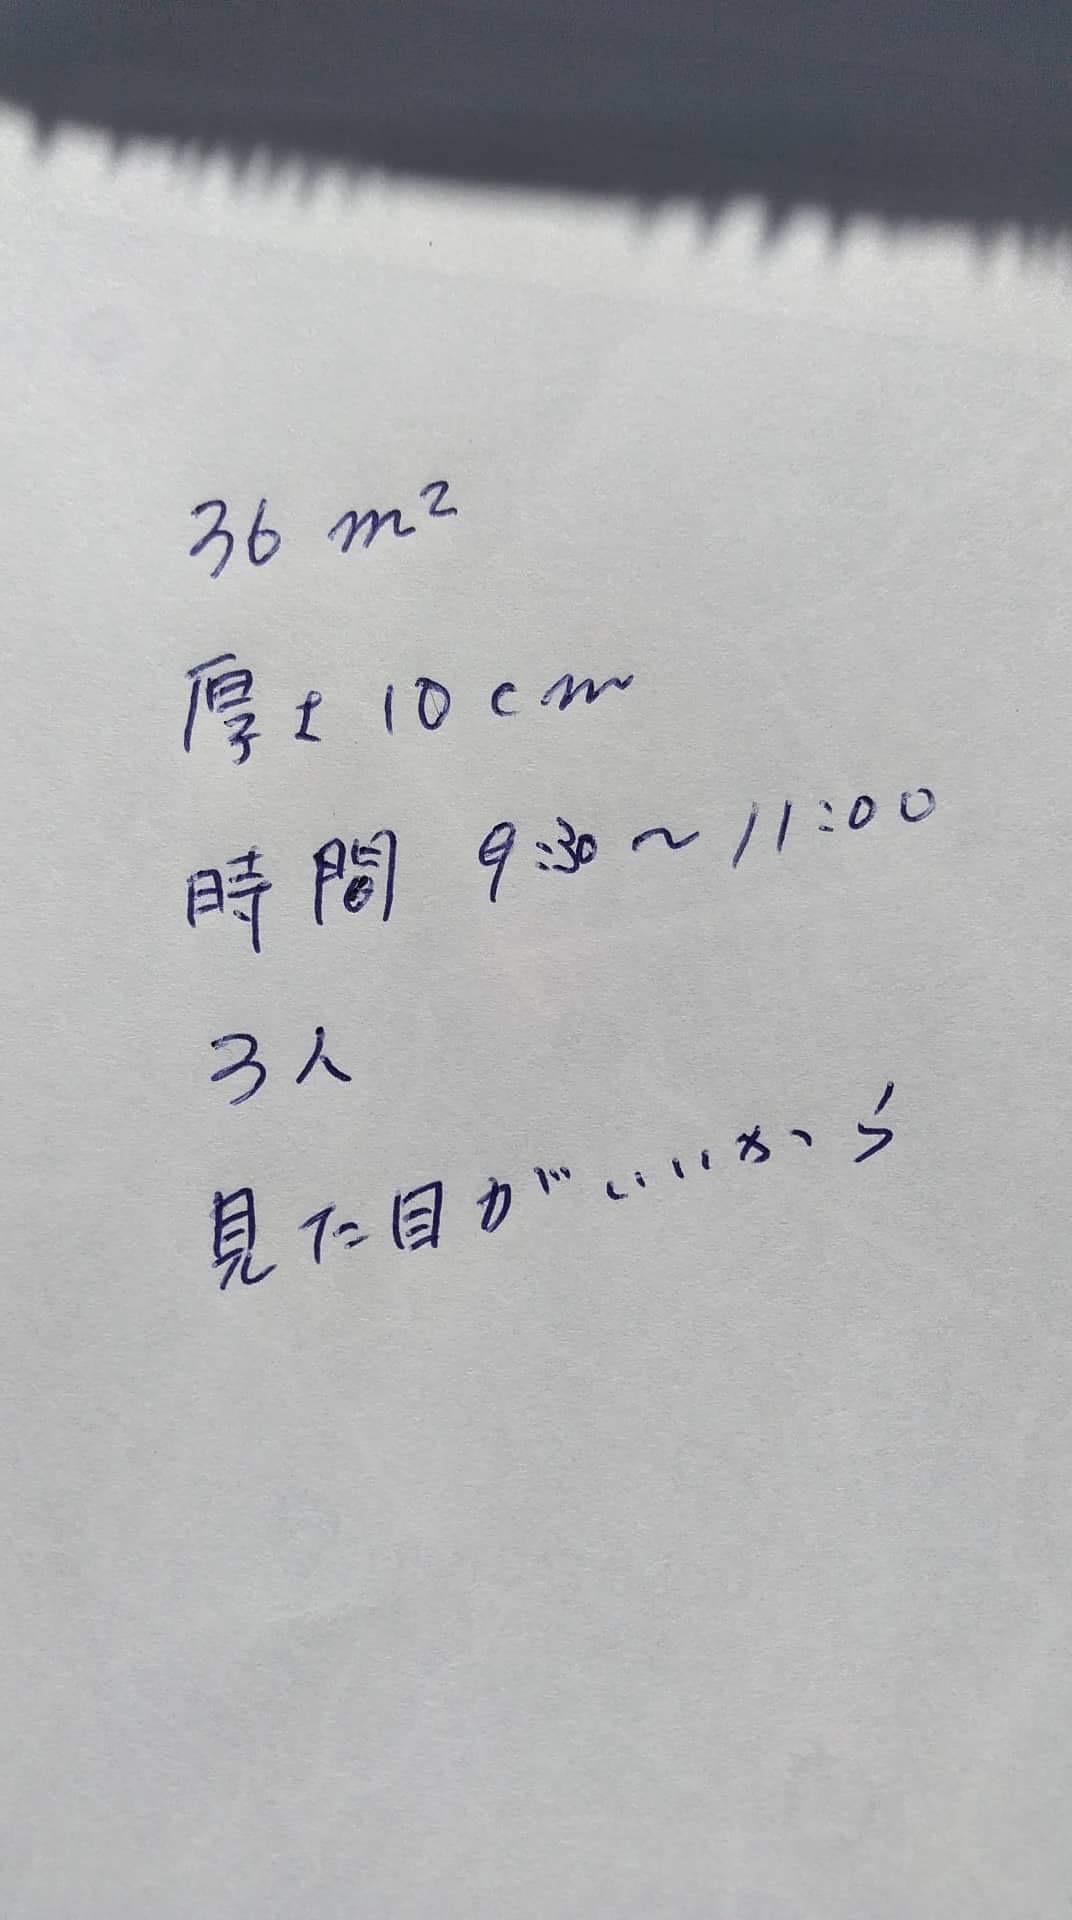 36 m²
厚さ 10cm
時間 9:30～11:00
3人
見た目がいいから